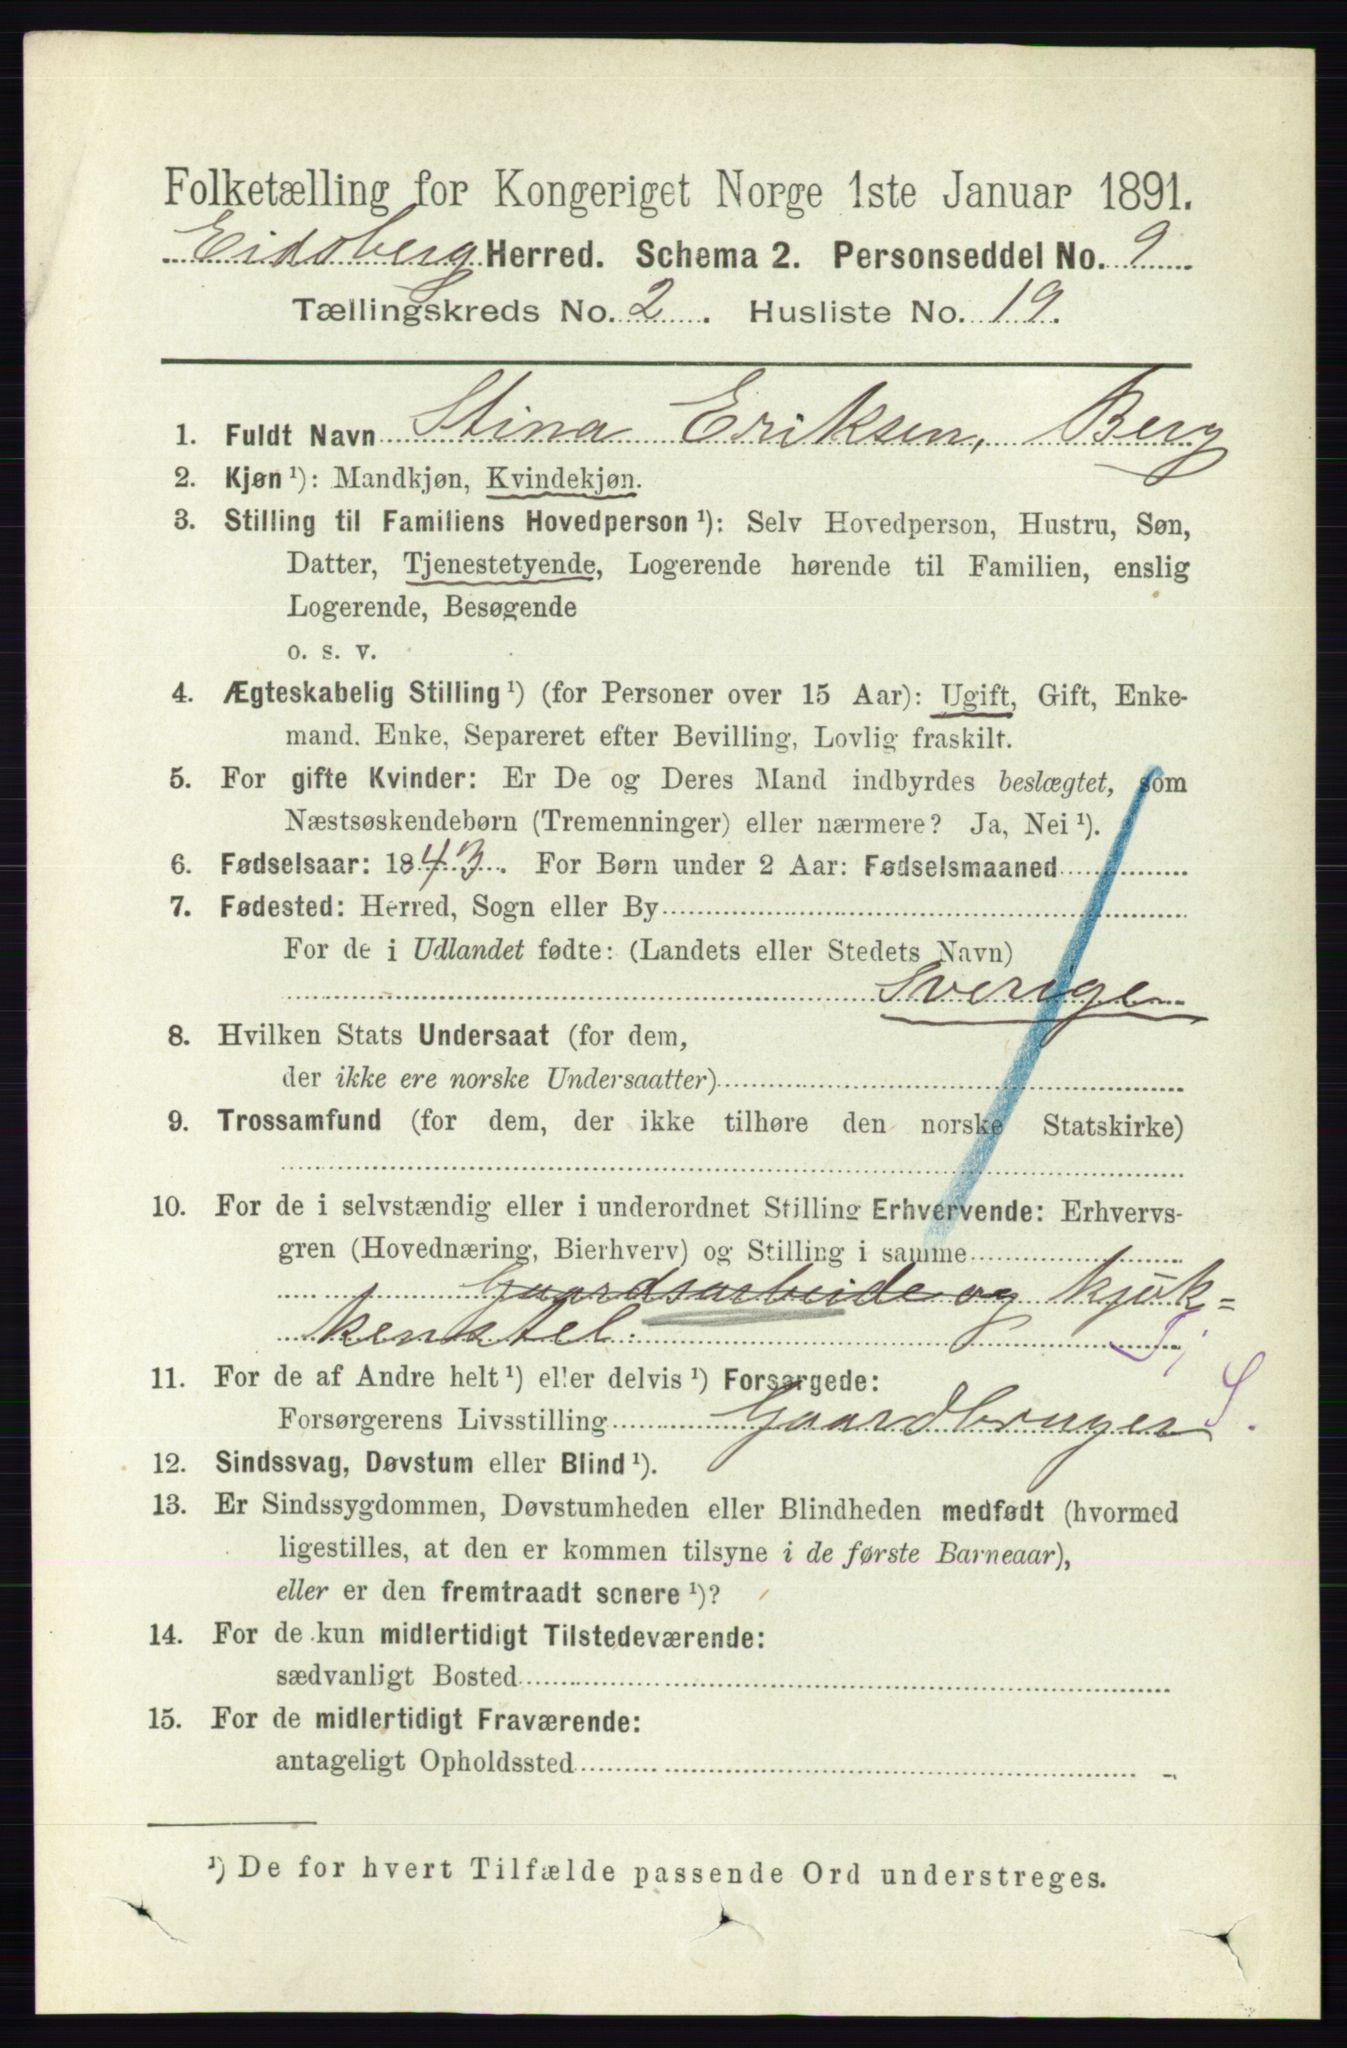 Folketælling for Kongeriget Norge 1ste Januar 1891.
Eidsberg Herred. Schema 2. Personseddel No. 9
Tællingskreds No. 2. Husliste No. 19.
1. Fuldt Navn Stina Eriksen, Berg
2. Kjøn ¹): Mandkjøn, Kvindekjøn.
3. Stilling til Familiens Hovedperson ¹): Selv Hovedperson, Hustru, Søn,
Datter, Tjenestetyende, Logerende hørende til Familien, enslig
Logerende, Besøgende
o. s. v.
4. Ægteskabelig Stilling ¹) (for Personer over 15 Aar): Ugift, Gift, Enke-
mand. Enke, Separeret efter Bevilling, Lovlig fraskilt.
5. For gifte Kvinder: Er De og Deres Mand indbyrdes beslægtet, som
Næstsøskendebørn (Tremenninger) eller nærmere? Ja, Nei ¹).
6. Fødselsaar: 1843. For Børn under 2 Aar: Fødselsmaaned
7. Fødested: Herred, Sogn eller By
For de i Udlandet fødte: (Landets eller Stedets Navn)
Sverige
8. Hvilken Stats Undersaat (for dem,
der ikke ere norske Undersaatter)
9. Trossamfund (for dem, der ikke tilhøre den norske Statskirke)
10. For de i selvstændig eller i underordnet Stilling Erhvervende: Erhvervs-
gren (Hovednæring, Bierhverv) og Stilling i samme
Gaardsarbeide og kjøk=
kenstel.
11. For de af Andre helt ¹) eller delvis ¹) Forsørgede:
Forsørgerens Livsstilling Gaardbruger S.
12. Sindssvag, Døvstum eller Blind ¹).
13. Er Sindssygdommen, Døvstumheden eller Blindheden medfødt (hvormed
ligestilles, at den er kommen tilsyne i de første Barneaar),
eller er den fremtraadt senere ¹)?
14. For de kun midlertidigt Tilstedeværende:
sædvanligt Bosted
15. For de midlertidigt Fraværende:
antageligt Opholdssted
¹) De for hvert Tilfælde passende Ord understreges.